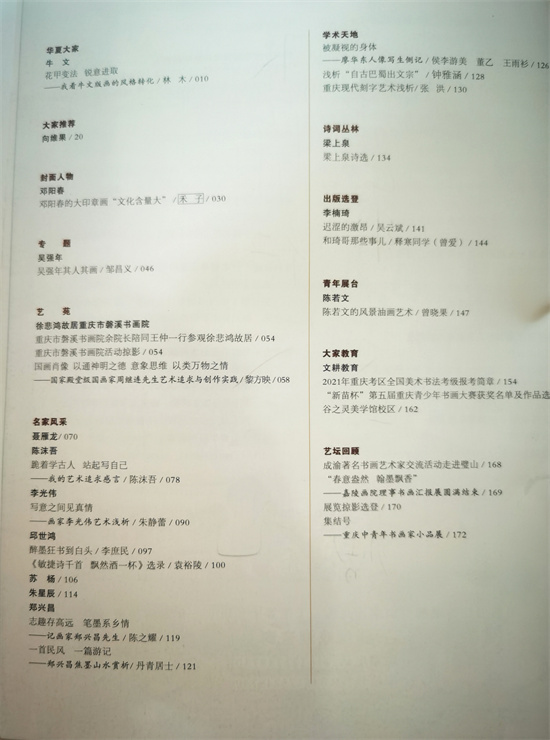 华夏大家
牛　文
花甲变法　锐意进取
——我看牛文版画的风格转化 / 林　木 / 010
大家推荐
向维果 / 20
封面人物
邓阳春
邓阳春的大印章画“文化含量大” / 禾　子 / 030
专　题
吴强年
吴强年其人其画 / 邹昌义 / 046
艺　苑
徐悲鸿故居重庆市磐溪书画院
重庆市磐溪书画院余院长陪同王仲一行参观徐悲鸿故居 / 054
重庆市磐溪书画院活动掠影 / 054
国画肖像　以通神明之德　意象思维　以类万物之情
——国家殿堂级国画家周继连先生艺术追求与创作实践 / 黎方映 / 058
名家风采
聂雁龙 / 070
陈沫吾
跪着学古人　站起写自己
——我的艺术追求感言 / 陈沫吾 / 078
李光伟
写意之间见真情
——画家李光伟艺术浅析 / 朱静蕾 / 090
邱世鸿
醉墨狂书到白头 / 李庶民 / 097
《敏捷诗千首　飘然酒一杯》选录 / 袁裕陵 / 100
苏　杨 / 106
朱星辰 / 114
郑兴昌
志趣存高远　笔墨系乡情
——记画家郑兴昌先生 / 陈之耀 / 119
一首民风　一篇游记
——郑兴昌焦墨山水赏析 / 丹青居士 / 121
学术天地
被凝视的身体
——廖华东人像写生侧记 / 侯李游美　董乙　王雨杉 / 126
浅析“自古巴蜀出文宗” / 钟雅涵 / 128
重庆现代刻字艺术浅析 / 张　洪 / 130
诗词丛林
梁上泉
梁上泉诗选 / 134
出版选登
李楠琦
迟涩的激昂 / 吴云斌 / 141
和琦哥那些事儿 / 释寒同学（曾爱） / 144
青年展台
陈若文
陈若文的风景油画艺术 / 曾晓果 / 147
大家教育
文耕教育
2021年重庆考区全国美术书法考级报考简章 / 154
“新苗杯”第五届重庆青少年书画大赛获奖名单及作品选
谷之灵美学馆校区 / 162
艺坛回顾
成渝著名书画艺术家交流活动走进璧山 / 168
“春意盎然　翰墨飘香”
——嘉陵画院理事书画汇报展圆满结束 / 169
展览掠影选登 / 170
集结号
——重庆中青年书画家小品展 / 172